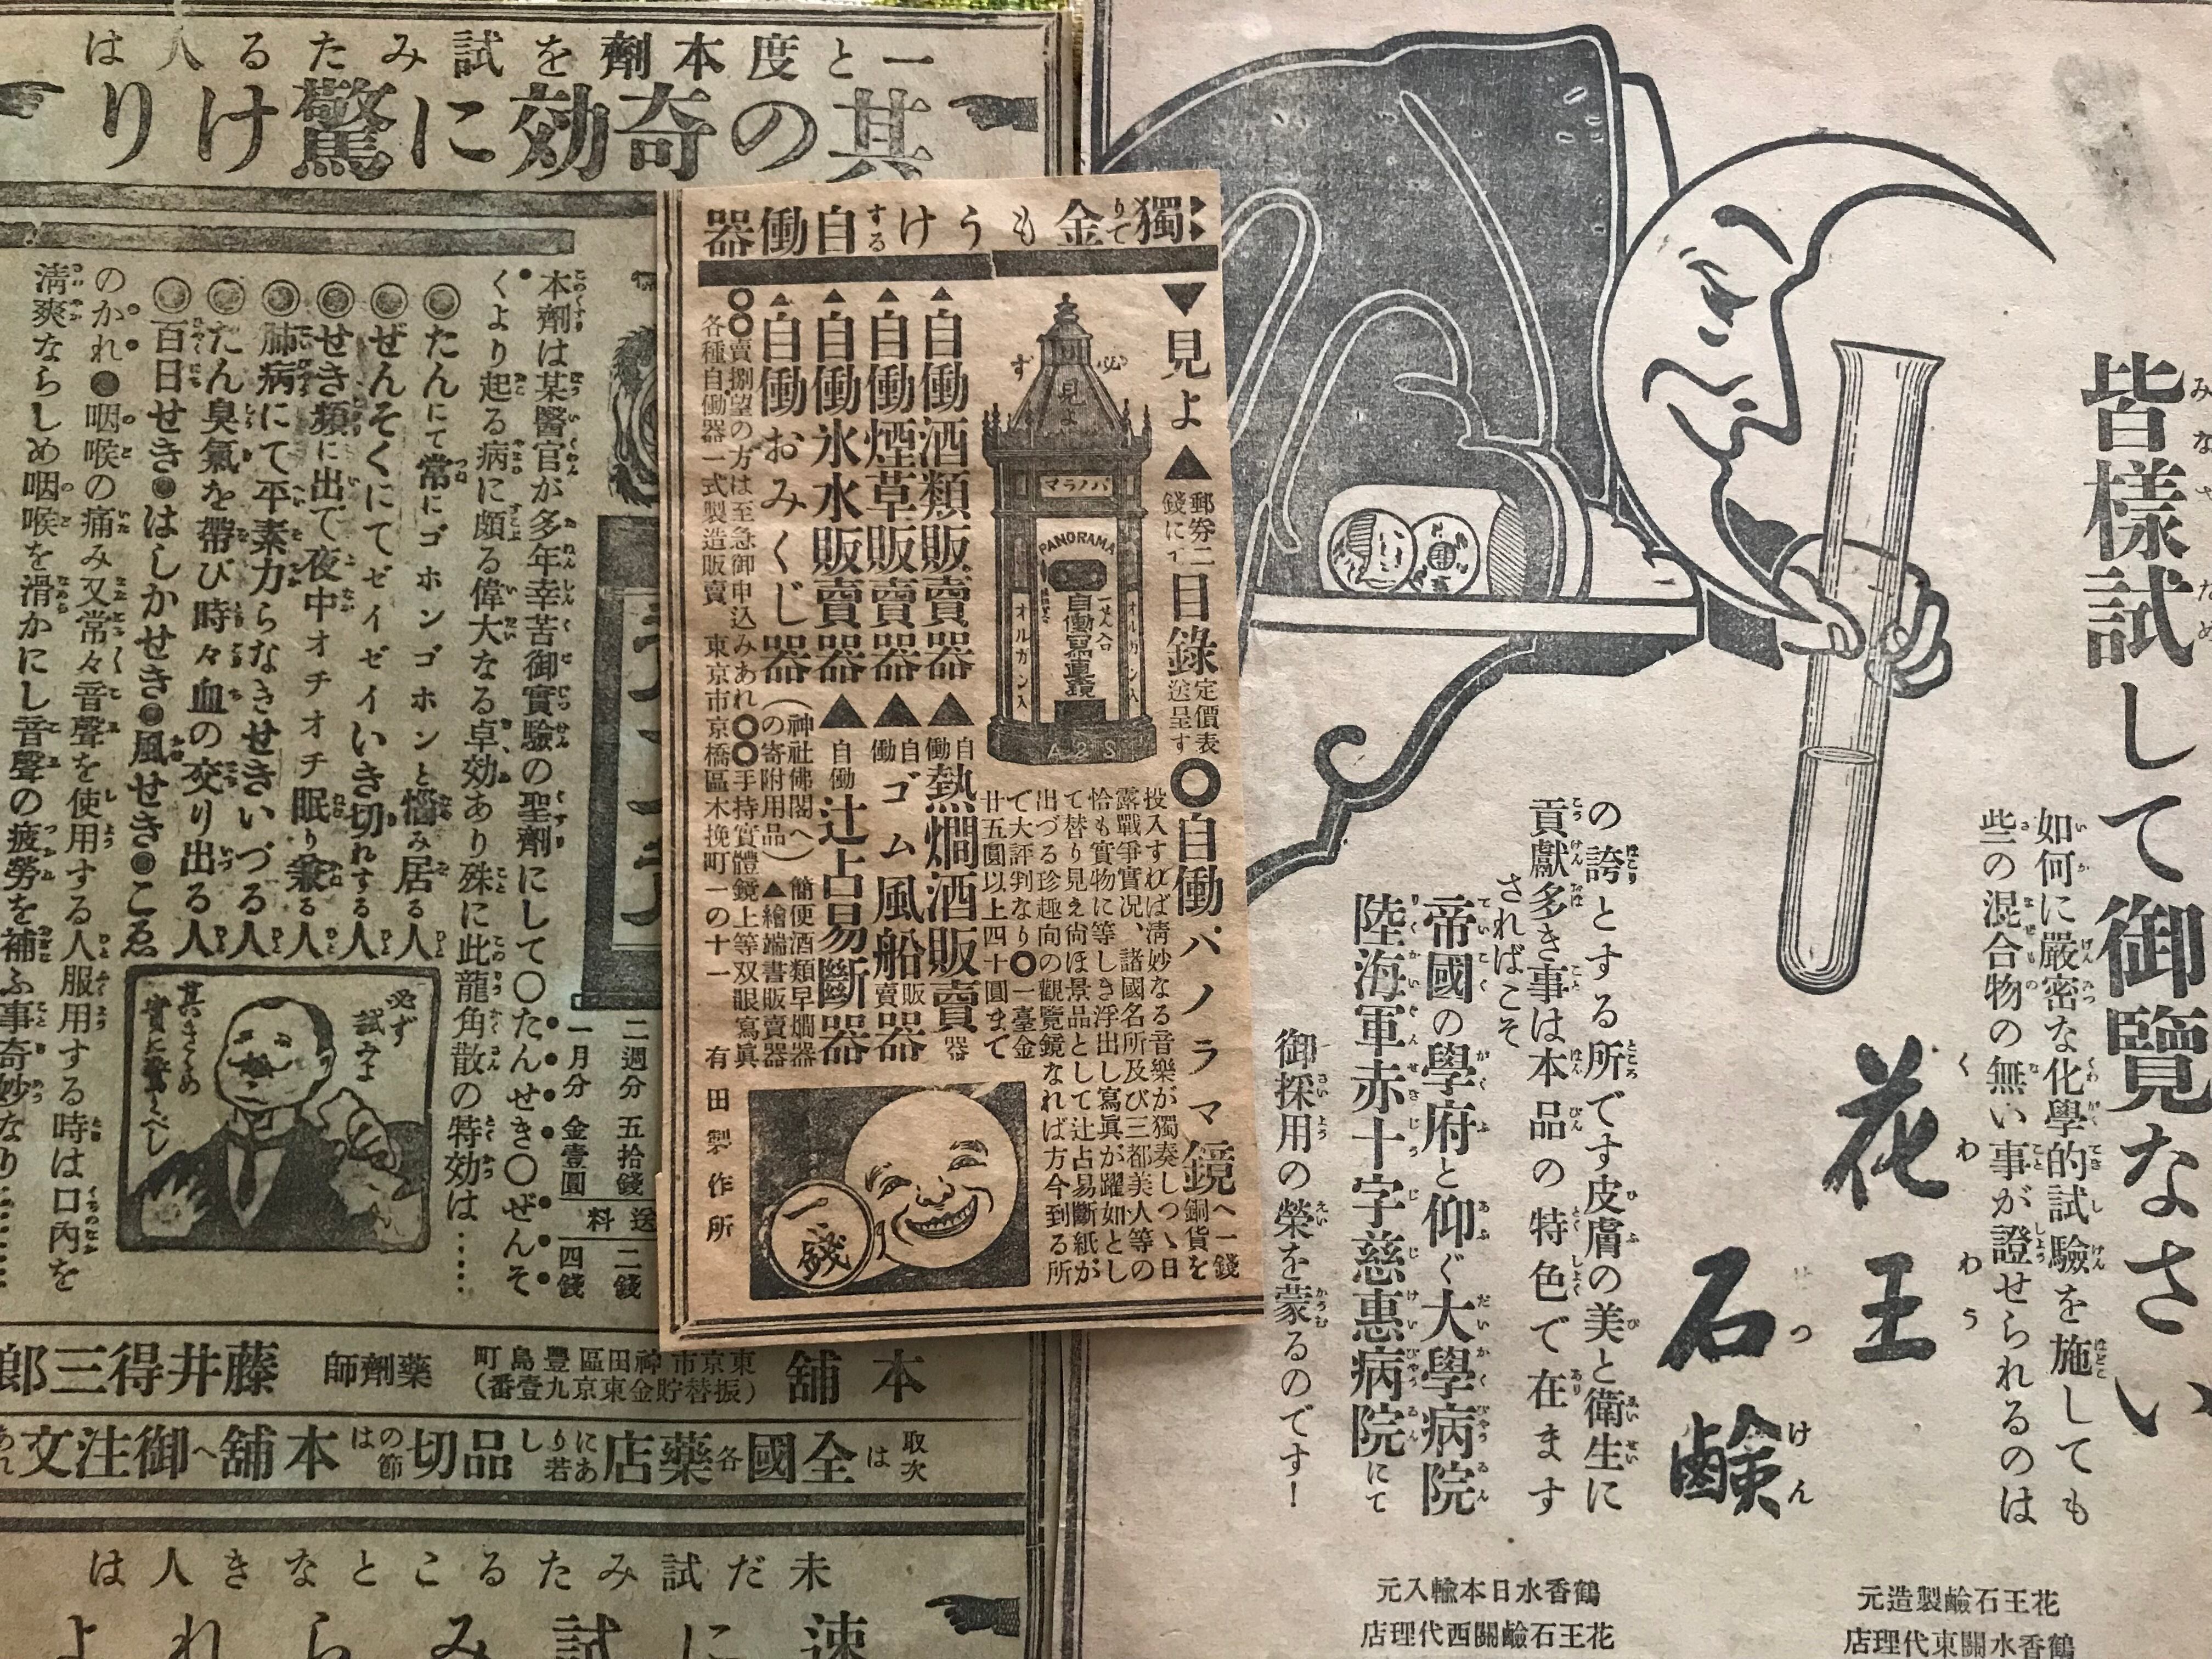 一と度本劑を試みたる人は
其の奇効に驚けり
本劑は某醫官が多年幸苦御實驗の聖劑にして〇たんせき〇ぜんそ
くより起る病に頗る偉大なる卓効あり殊に此龍角散の特効は……
◎たんにて常にゴホンゴホンと惱み居る人
◎ぜんそくにてゼイゼイいき切れする人
◎せき頻に出で夜中オチオチ眠り兼る人
◎肺病にて平素力らなきせきいづる人
◎たん臭氣を帶び時々血の交り出る人
◎百日せき●はしかせき●風せき●こゑ
のかれ●咽喉の痛み又常々音聲を使用する人服用する時は口內を
淸爽ならしめ咽喉を滑かにし音聲の疲勞を補ふ事奇妙なり……
必ず
試みよ
其きゝめ
實に驚くべし
二週分 五拾錢
一月分 金壹圓
送料
二錢
四錢
本舖
東京市神田區豐島町
(振替貯金東京九壹番)
藥劑師
藤井得三郎
取次は全國各藥店にあり若し品切の節は本舖へ御注文あれ
未だ試みたることなき人は
速に試みられよ
獨りで金もうけする自働器
▼見よ▲
郵劵二錢にて目錄定價表送呈す
必ず
見よ
パノラマ
PANORAMA
一せん入口
自働寫眞鏡
オルガン入
オルガン入
A2S
〇自働パノラマ鏡へ一錢銅貨を
投入すれば淸妙なる音樂が獨奏しつゝ日
露戰爭實况、諸國名所及び三都美人等の
恰も實物に等しき浮出し寫眞が躍如とし
て替り見え尙ほ景品として辻占易斷紙が
出づる珍趣向の觀覽鏡なれば方今到る所
で大評判なり〇一臺金
廿五圓以上四十圓まで
▲自働酒類販賣器
▲自働煙草販賣器
▲自働氷水販賣器
▲自働おみくじ器
▲自働熱燗酒販賣器
▲自働ゴム風船販賣器
▲自働辻占易斷器
(神社佛閣へ
の寄附用品)
簡便酒類早燗器
▲繪端書販賣器
〇〇賣捌望の方は至急御申込みあれ〇〇手持實體鏡上等双眼寫眞
各種自働器一式製造販賣 東京市京橋區木挽町一の十一 有田製作所
一錢
皆樣試して御覽なさい
如何に嚴密な化學的試驗を施しても
些の混合物の無い事が證せられるのは
花王石鹼
の誇とする所です皮膚の美と衛生に
貢獻多き事は本品の特色で在ます
さればこそ
帝國の學府と仰ぐ大學病院
陸海軍赤十字慈惠病院にて
御採用の榮を蒙るのです!
花王石鹼製造元
鶴香水關東代理店
鶴香水日本輸入元
花王石鹼關西代理店